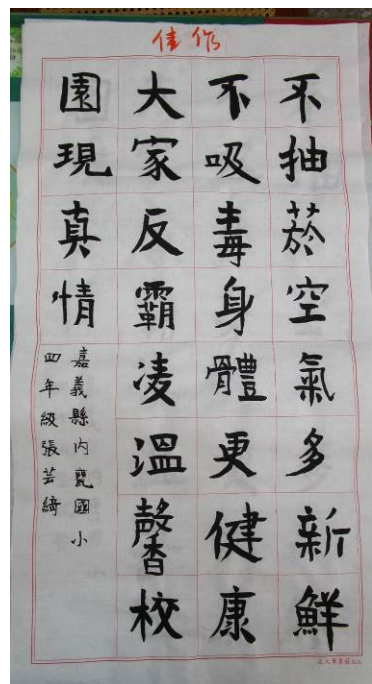 佳作
不抽菸空氣多新鮮
不吸毒身體更健康
大家反霸凌溫馨校
園現真情
嘉義縣內甕國小
四年級張芸綺